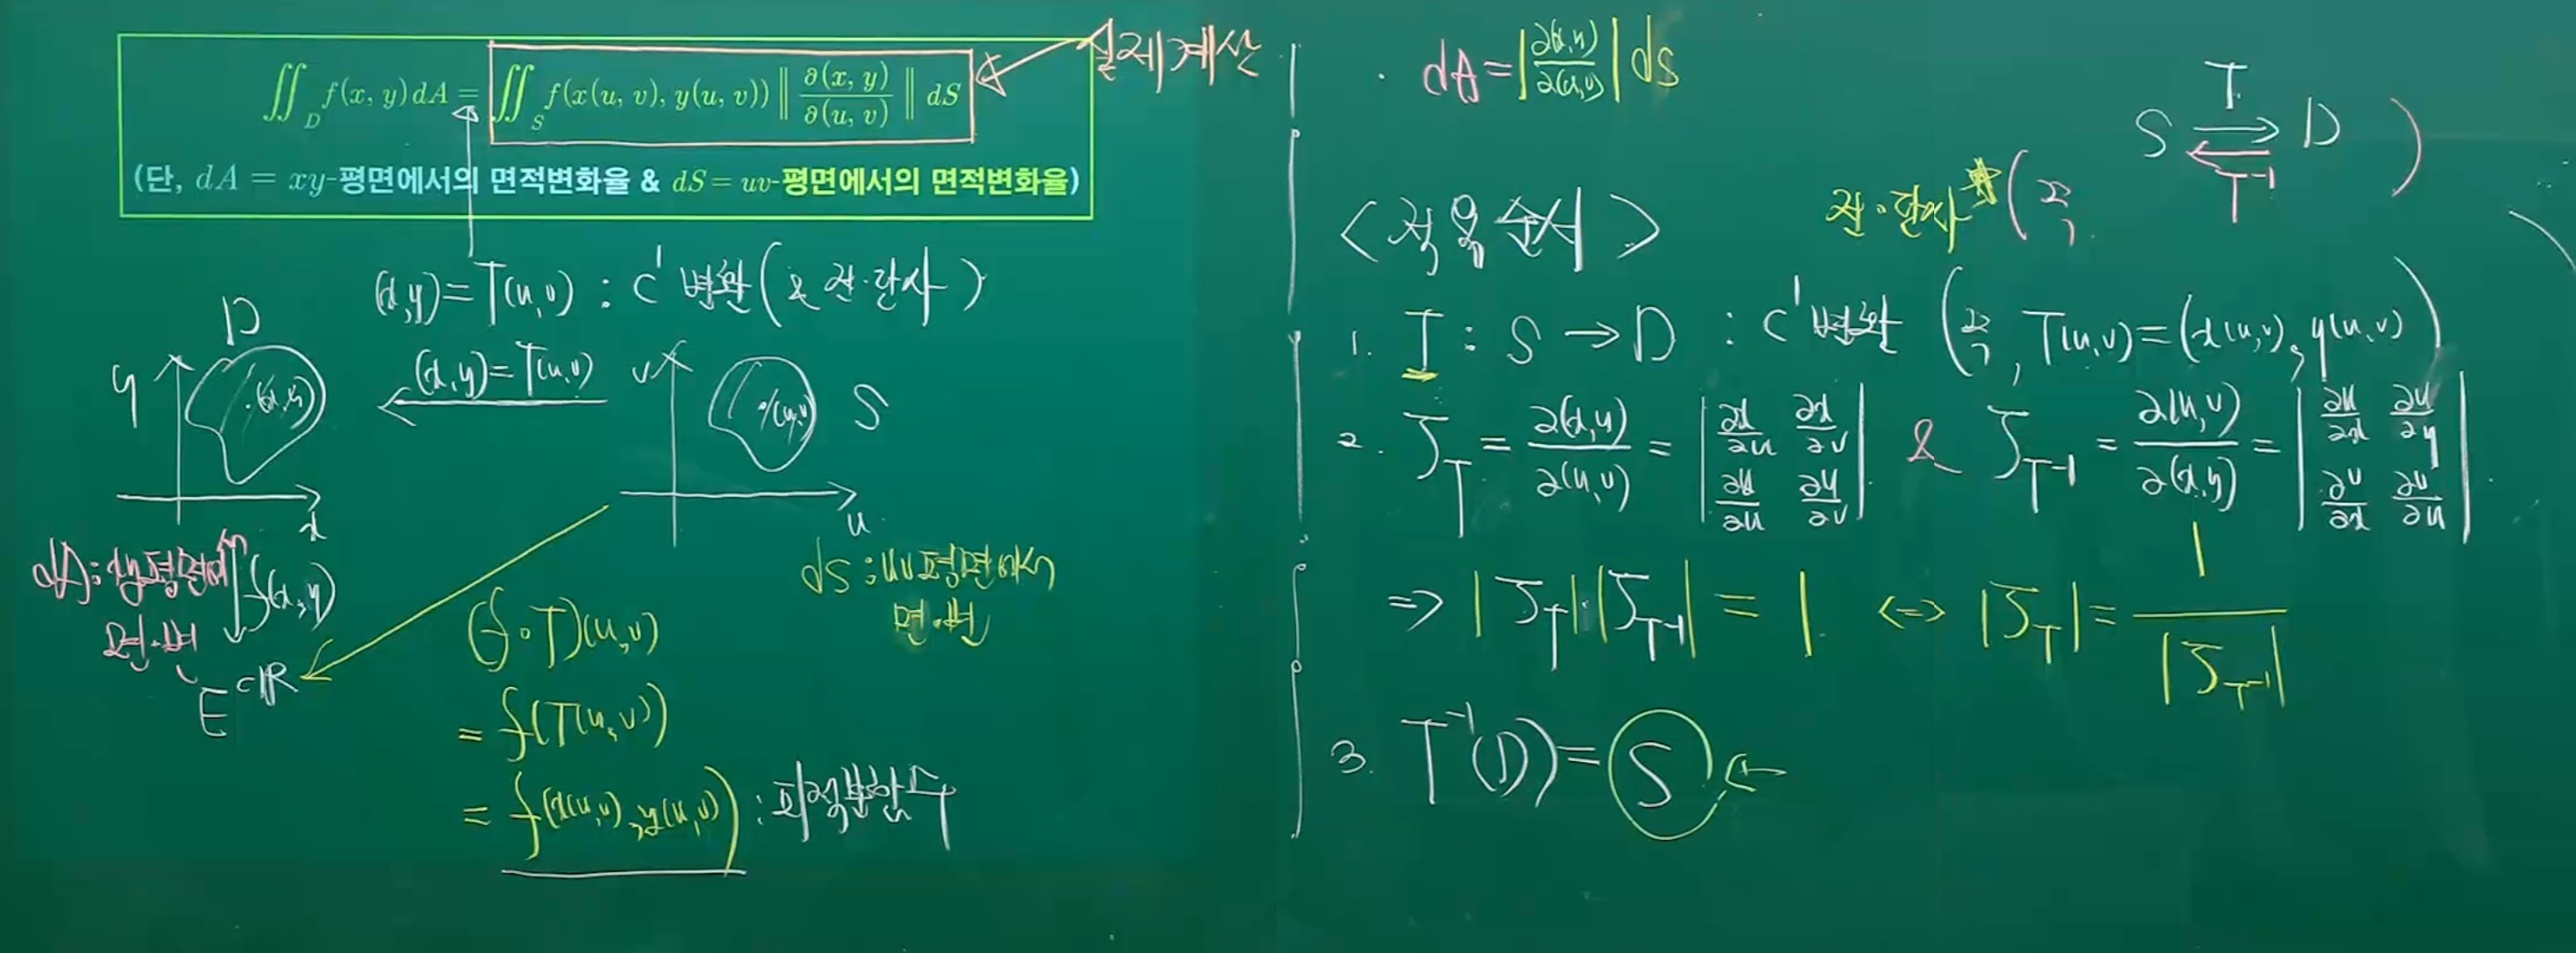 ∬_D f(x, y)dA = ∬_S f(x(u, v), y(u, v)) ‖ ∂(x, y)/∂(u, v) ‖ dS
실제계산
(단, dA = xy-평면에서의 면적변화율 & dS = uv-평면에서의 면적변화율)
(x,y)=T(u,v) : C¹ 변환 (& 전·단사)
D
y
(x,y)
x
(x,y)=T(u,v)
v
(u,v)
S
u
dA : xy평면에서
면·변
f(x,y)
E⊂ℝ
dS : uv평면에서
면·변
(f∘T)(u,v)
= f(T(u,v))
= f(x(u,v), y(u,v)) : 피적분함수
· dA = |∂(x,y)/∂(u,v)| dS
<적용순서>
전·단사* (즉,
S ⇄ D )
T
T⁻¹
1. T : S → D : C¹변환 (즉, T(u,v)=(x(u,v), y(u,v))
2. J_T = ∂(x,y)/∂(u,v) = | ∂x/∂u ∂x/∂v ; ∂y/∂u ∂y/∂v | & J_T⁻¹ = ∂(u,v)/∂(x,y) = | ∂u/∂x ∂u/∂y ; ∂v/∂x ∂v/∂y |
⇒ |J_T| |J_T⁻¹| = 1 ⇔ |J_T| = 1/|J_T⁻¹|
3. T⁻¹(D) = S ←